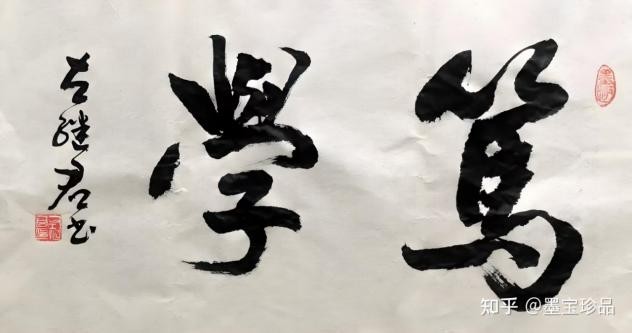 篤學
继君书
知乎 @墨宝珍品